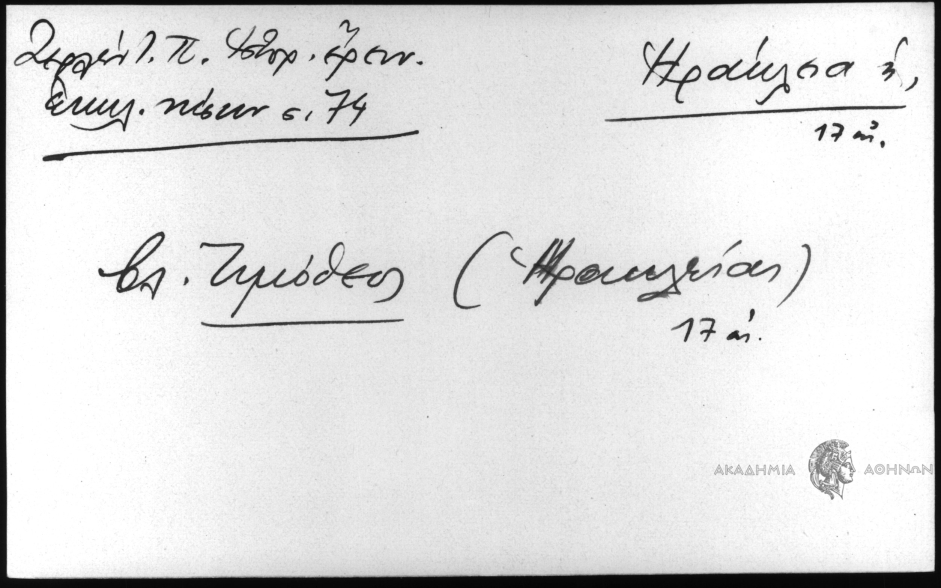 Ζερλέντ. Π. Ἱστορ. ἔρευν.
ἐκκλ. νήσων σ. 74
Ἡράκλεια ἡ,
17 αἰ.
βλ. Τιμόθεος (Ἡρακλείας)
17 αἰ.
ΑΚΑΔΗΜΙΑ ΑΘΗΝΩΝ